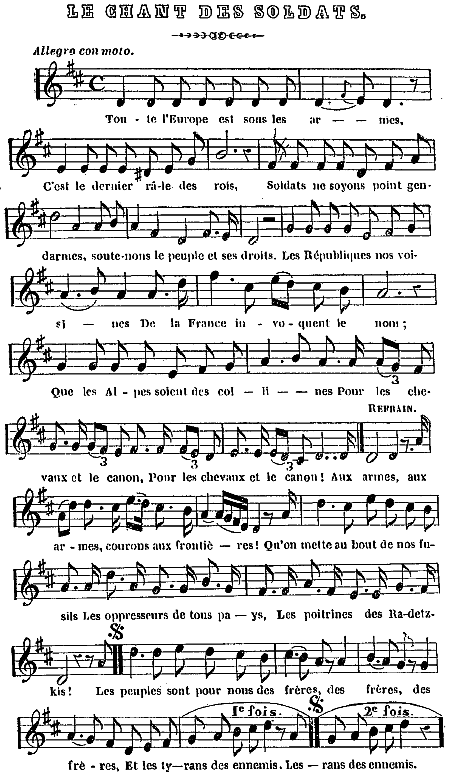 LE CHANT DES SOLDATS.
Allegro con moto.
Tou - te l'Europe est sous les ar — — mes,
C'est le dernier râ-le des rois, Soldats ne soyons point gen-
darmes, soute-nons le peuple et ses droits. Les Républiques nos voi-
si — nes De la France in - vo - quent le nom ;
Que les Al - pes soient des col - li — — nes Pour les che-
REFRAIN.
vaux et le canon, Pour les chevaux et le canon ! Aux armes, aux
ar - mes, courons aux frontiè — res ! Qu'on mette au bout de nos fu-
sils Les oppresseurs de tous pa — ys, Les poitrines des Ra-detz-
kis ! Les peuples sont pour nous des frères, des frères, des
1e fois. 2e fois.
frè - res, Et les ty—rans des ennemis. Les — rans des ennemis.